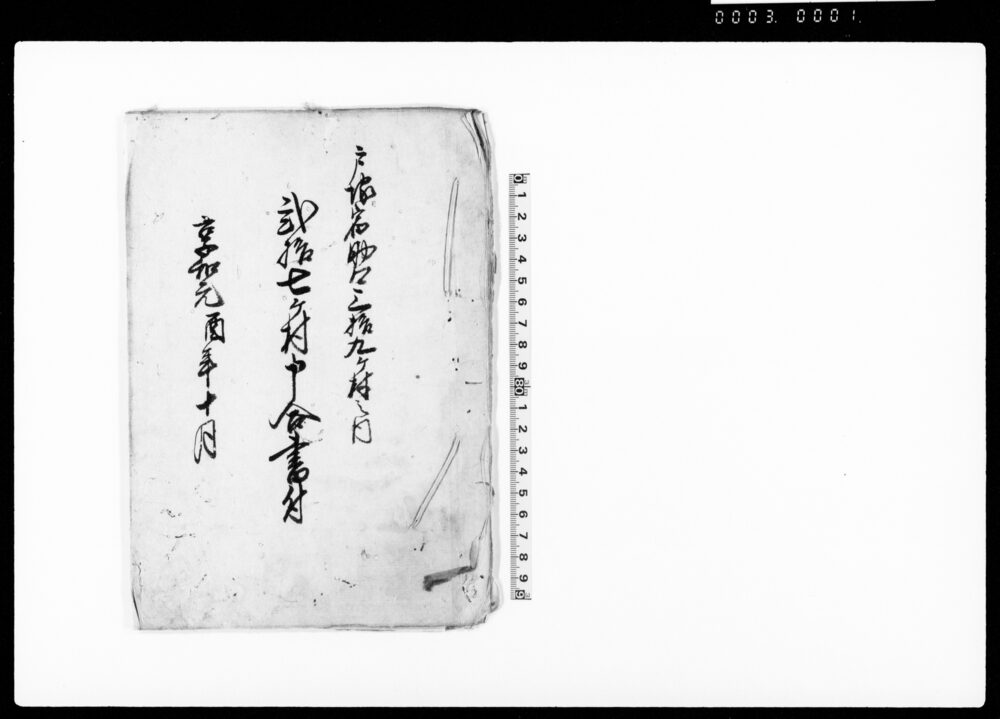 0003. 0001.
戸塚宿助合三拾九ヶ村之内
弐拾七ヶ村申合書付
享和元酉年十月
0 1 2 3 4 5 6 7 8 9 80 1 2 3 4 5 6 7 8 9